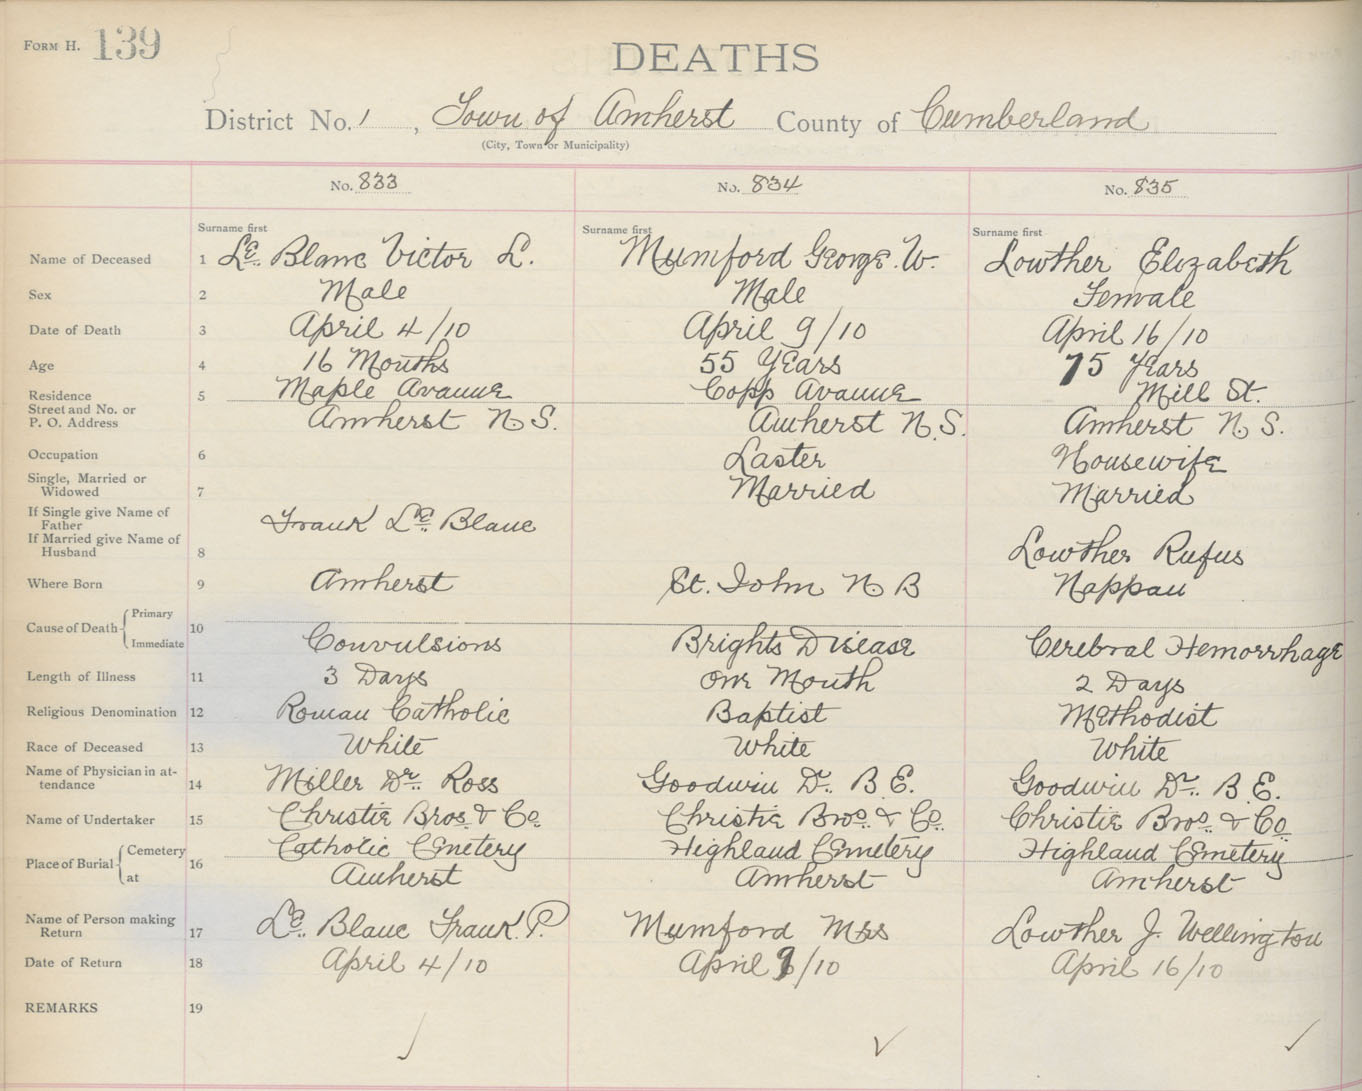 FORM H. 139
DEATHS
District No. 1, Town of Amherst County of Cumberland
(City, Town or Municipality)
No. 833 No. 834 No. 835
Surname first Surname first Surname first
Name of Deceased 1 Le Blanc Victor L. Mumford George. W. Lowther Elizabeth
Sex 2 Male Male Female
Date of Death 3 April 4/10 April 9/10 April 16/10
Age 4 16 Months 55 Years 75 Years
Residence 5 Maple Avanue Copp Avanue Mill St.
Street and No. or
P. O. Address Amherst N. S. Amherst N. S. Amherst N. S.
Occupation 6 Laster Housewife
Single, Married or
Widowed 7 Married Married
If Single give Name of
Father Frank Le Blanc
If Married give Name of
Husband 8 Lowther Rufus
Where Born 9 Amherst St. John N B Nappan
Cause of Death 10 Primary
Immediate Convulsions Brights Disease Cerebral Hemorrhage
Length of Illness 11 3 Days One Month 2 Days
Religious Denomination 12 Roman Catholic Baptist Methodist
Race of Deceased 13 White White White
Name of Physician in at-
tendance 14 Miller Dr. Ross Goodwin Dr. B. E. Goodwin Dr. B. E.
Name of Undertaker 15 Christie Bros. & Co. Christie Bros. & Co. Christie Bros. & Co.
Place of Burial 16 Cemetery Catholic Cemetery Highland Cemetery Highland Cemetery
at Amherst Amherst Amherst
Name of Person making
Return 17 Le Blanc Frank. P. Mumford Mrs Lowther J. Wellington
Date of Return 18 April 4/10 April 9/10 April 16/10
REMARKS 19